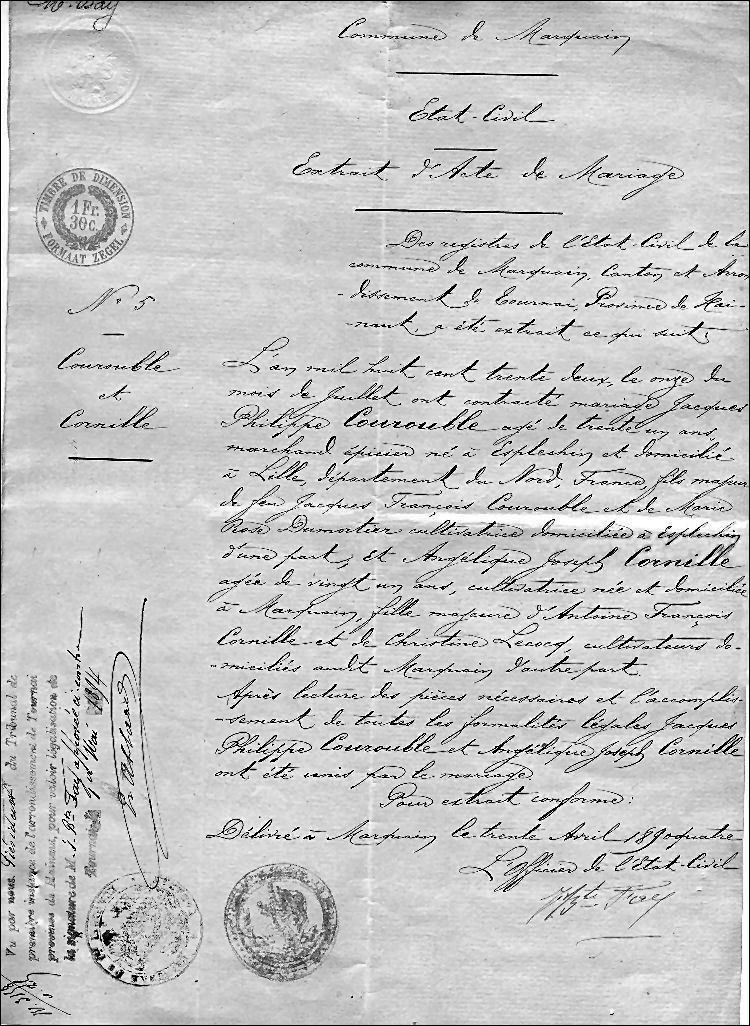 Commune de Marquain
Etat-Civil
Extrait d'Acte de Mariage
TIMBRE DE DIMENSION
1 Fr.
30 c.
FORMAAT ZEGEL
Des registres de l'Etat-Civil de la
commune de Marquain, Canton et Arron
-dissement de Tournai, Province de Hai-
-naut, a été extrait ce qui suit:
N° 5
Courouble
et
Cornille
L'an mil huit cent trente deux, le onze du
mois de Juillet ont contracté mariage Jacques
Philippe Courouble agé de trente un ans,
marchand épicier né à Esplechin et domicilié
à Lille, département du Nord, France, fils majeur
de feu Jacques François Courouble et de Marie
Rose Dumortier cultivatrice domiciliée à Esplechin
d'une part; et Angélique Joseph Cornille
agée de vingt un ans, cultivatrice née et domiciliée
à Marquain, fille majeure d'Antoine François
Cornille et de Christine Lecocq, cultivateurs do-
-miciliés audit Marquain d'autre part.
Après lecture des pièces nécessaires et l'accomplis-
-sement de toutes les formalités légales Jacques
Philippe Courouble et Angélique Joseph Cornille
ont été unis par le mariage
Pour extrait conforme:
Délivré à Marquain le trente Avril 1890quatre
L'Officier de l'Etat-Civil
Vu par nous, Président du Tribunal de
première instance de l'arrondissement de Tournai
province de Hainaut, pour valoir légalisation de
la signature de M. J. Bte Fay apposée ci-contre
Tournai le Mai 1894